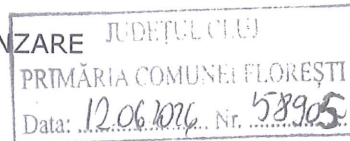 NZARE
JUDEȚUL CLUJ
PRIMĂRIA COMUNEI FLOREȘTI
Data: 12.06.2026 Nr. 58905